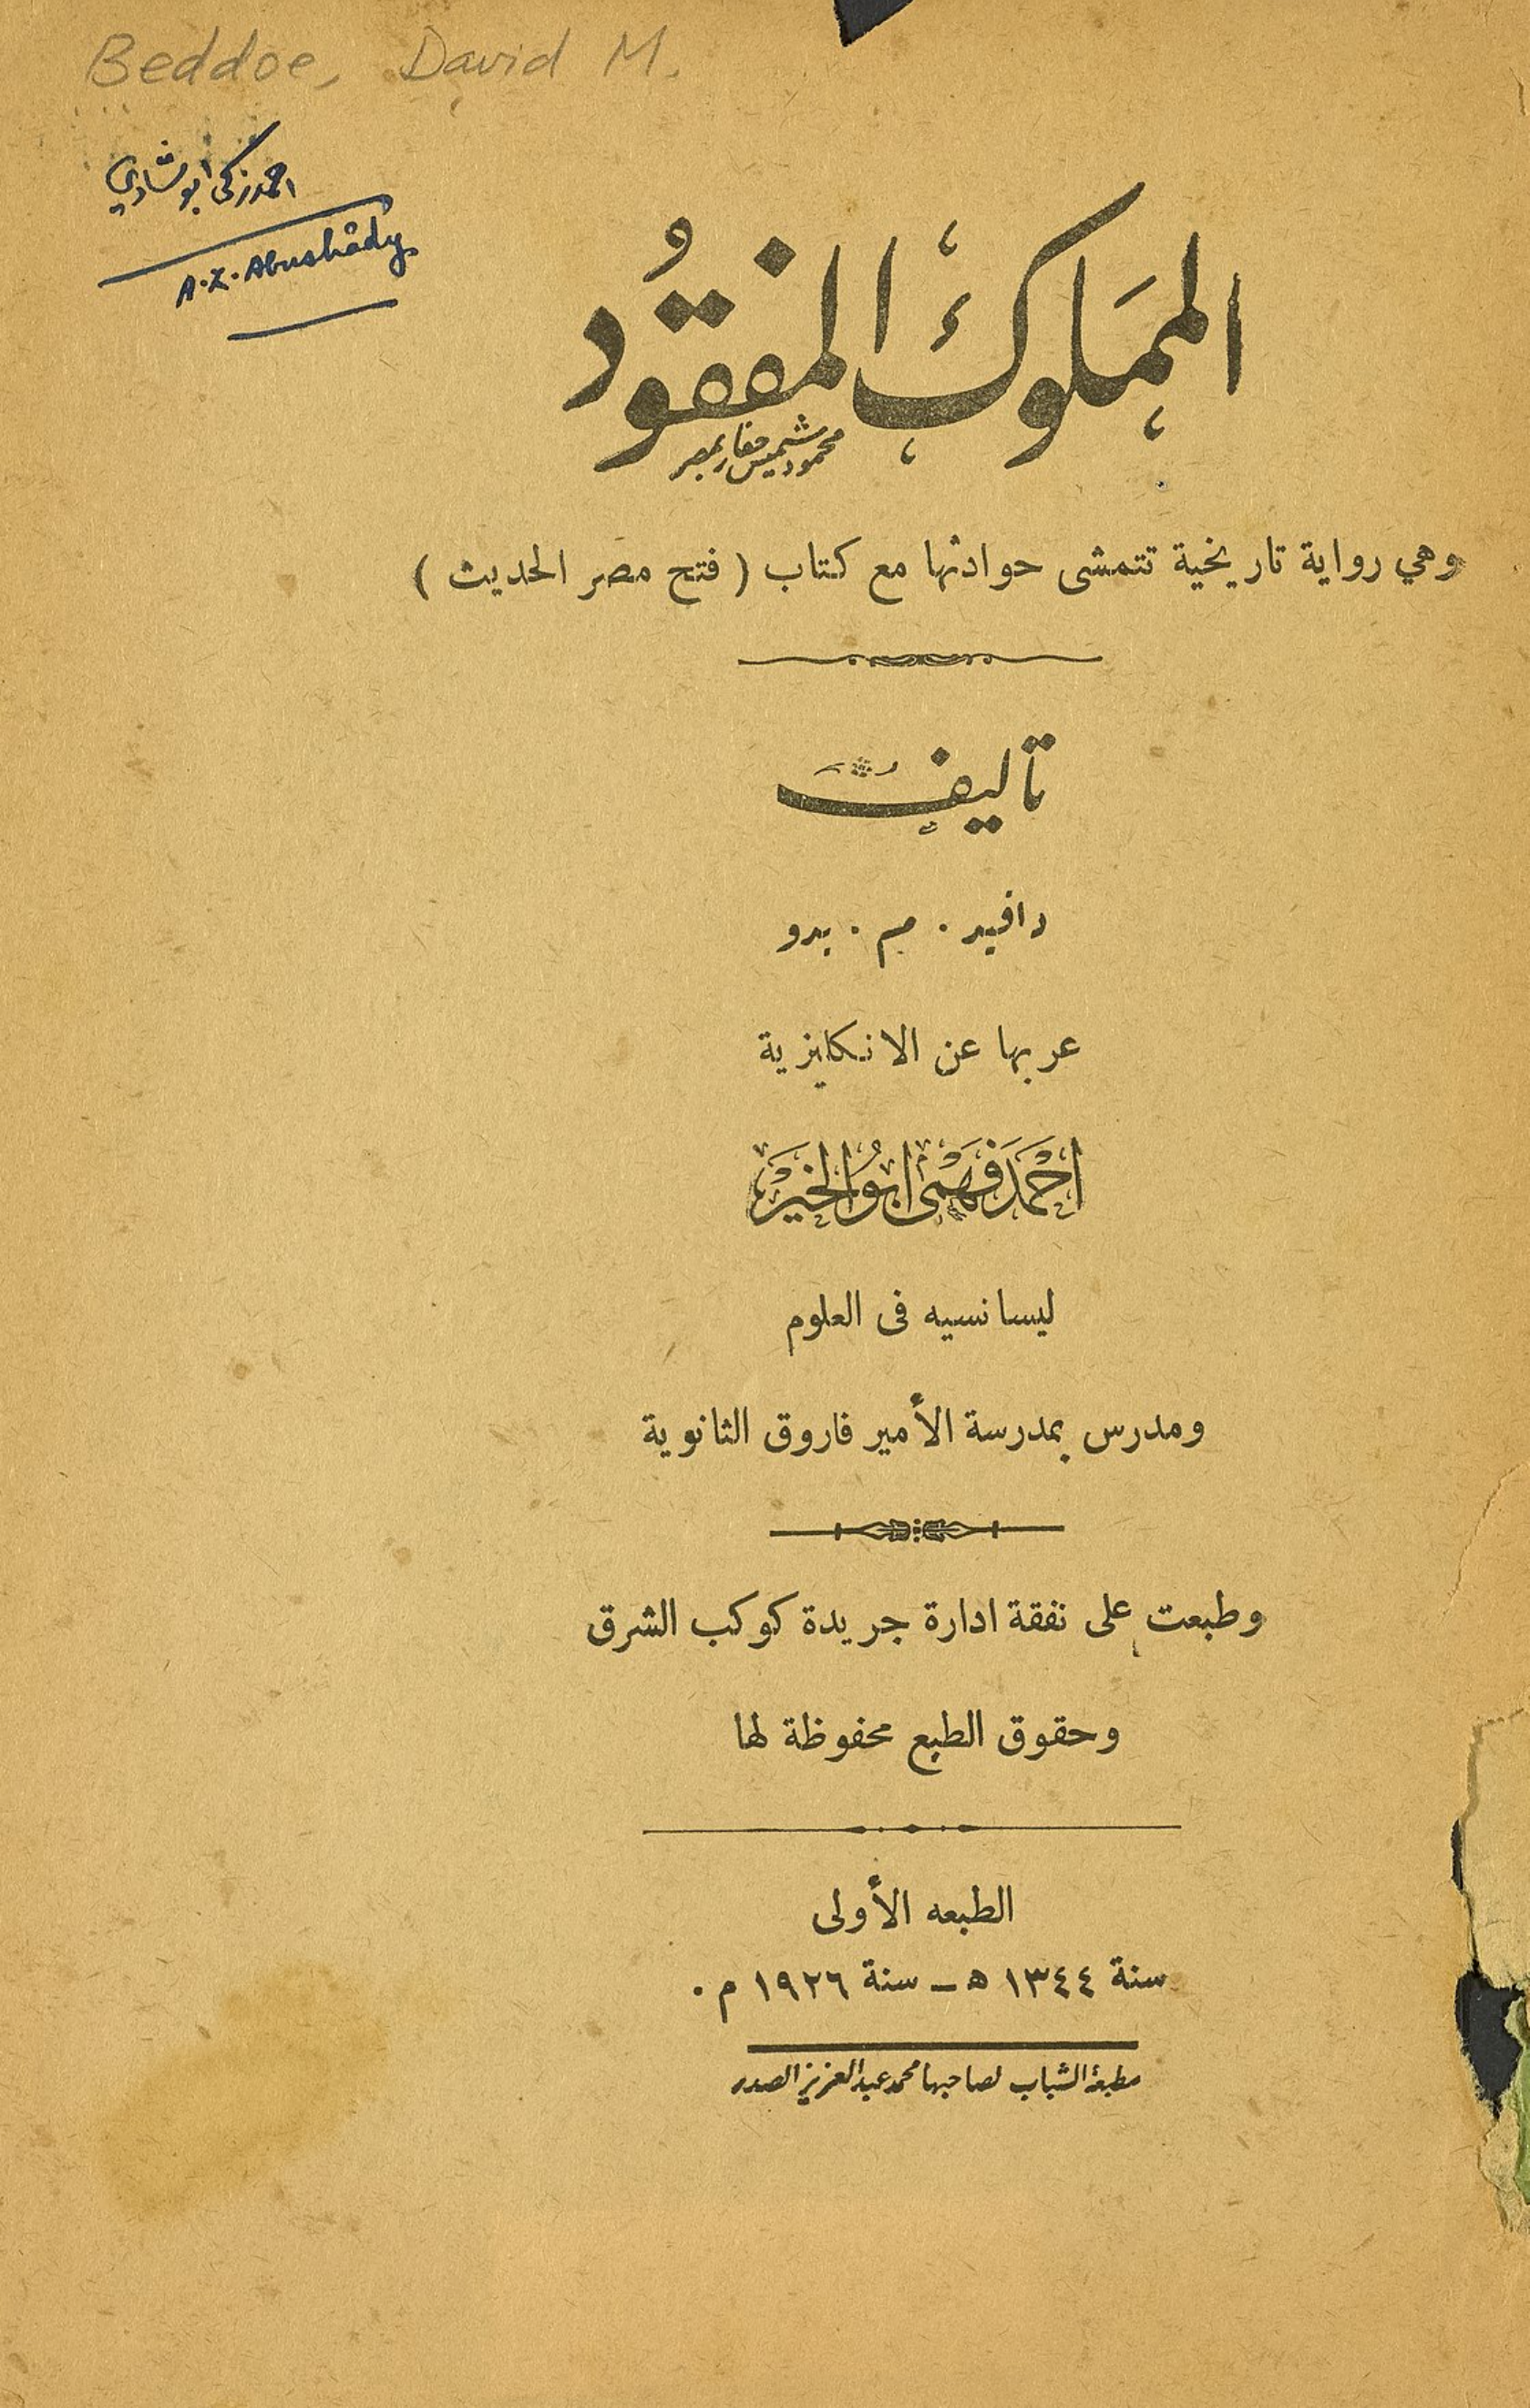 Beddoe, David M.
احمد زكى ابو شادي
A. Z. Abushâdy
المملوك المفقود
وهي رواية تاريخية تتمشى حوادثها مع كتاب ( فتح مصر الحديث )
تأليف
دافيد . م . بدو
عربها عن الانكليزية
احمد فهمى ابو الخير
ليسانسيه فى العلوم
ومدرس بمدرسة الأمير فاروق الثانوية
وطبعت على نفقة ادارة جريدة كوكب الشرق
وحقوق الطبع محفوظة لها
الطبعه الأولى
سنة ١٣٤٤ ه‍ ـ سنة ١٩٢٦ م .
مطبعة الشباب لصاحبها محمد عبد العزيز الصدر